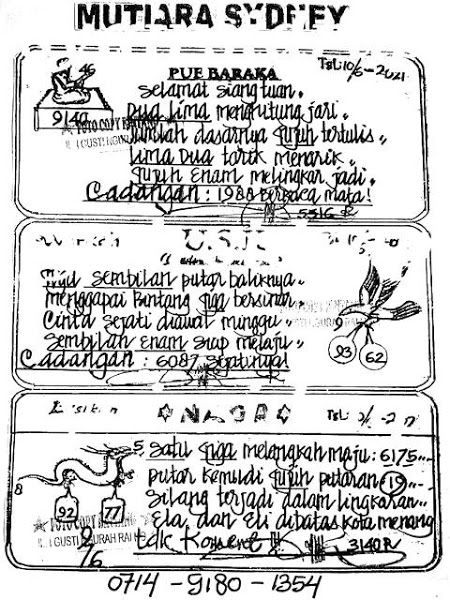 MUTIARA SYDNEY
PUE BARAKA
Tgl: 10/6-2021
46
9140
Selamat siang tuan.
Dua Lima menghitung jari.
Jumlah dasarnya Tujuh tertulis
Lima Dua tarik menarik.
Tujuh Enam melingkar jadi.
Cadangan : 1988 Berkaca mata!
5516 R
TOTO COPY
I GUSTI
Sembilan putar baliknya.
menggapai Bintang Tiga bersinar.
Cinta sejati diawal minggu
Sembilan Enam siap melaju
Cadangan : 6087
93
62
5 Satu Tiga melangkah maju : 6175
putar kemudi Tujuh putaran 19
Silang terjadi dalam lingkaran
Ela dan Eli dibatas kota menang
tdk Konsent
3140 R
8
92
77
TOTO COPY
I GUSTI NGURAH RAI
2/6
0714 - 9180 - 1354